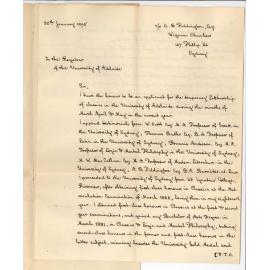 30th January 1895
c/o A. B. Piddington, Esq.
Wigram Chambers
167 Phillip St
Sydney
To the Registrar
of the University of Adelaide
Sir,
I have the honour to be an applicant for the temporary Lectureship
of classics in the University of Adelaide during the months of
March April & May in the next year.
I append testimonials from W. Scott Esq M.A. Professor of Greek in
the University of Sydney; Thomas Butler Esq B.A. Professor of
Latin in the University of Sydney; Francis Anderson Esq M.A.
Professor of Logic & Mental Philosophy in the University of Sydney;
M. W. MacCallum Esq M.A. Professor of Modern Literature in the
University of Sydney; A. B. Piddington Esq B.A. Barrister-at-Law.
I proceeded to the University of Sydney from St Ignatius' College
Riverview, after obtaining first-class honours in Classics at the
Matriculation Examination of March 1888, being then in my eighteenth
year. I obtained first-class honours in Classics at the first & second
year examinations, and gained my Bachelor of Arts Degree in
March 1891, in Classics & Logic and Mental Philosophy, taking
second-class honours in the former and first-class honours in the
latter subject, winning besides the University Gold Medal and
[P.T.O.